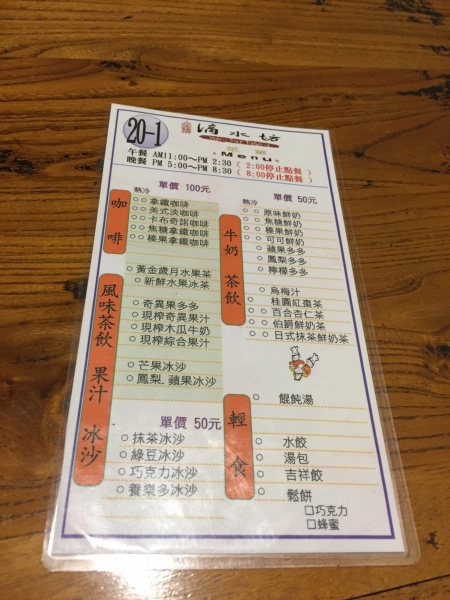 20-1
滴水坊
Menu
午餐 AM11:00~PM 2:30 ( 2:00停止點餐 )
晚餐 PM 5:00~PM 8:30 ( 8:00停止點餐 )
單價 100元
熱冷
咖啡
○○拿鐵咖啡
○○美式淡咖啡
○○卡布奇諾咖啡
○○焦糖拿鐵咖啡
○○榛果拿鐵咖啡
風味茶飲 果汁 冰沙
○黃金歲月水果茶
○新鮮水果冰茶
○奇異果多多
○現榨奇異果汁
○現榨木瓜牛奶
○現榨綜合果汁
○芒果冰沙
○鳳梨.蘋果冰沙
單價 50元
○抹茶冰沙
○綠豆冰沙
○巧克力冰沙
○養樂多冰沙
單價 50元
熱冷
牛奶 茶飲
○○原味鮮奶
○○焦糖鮮奶
○○榛果鮮奶
○○可可鮮奶
○蘋果多多
○鳳梨多多
○檸檬多多
○烏梅汁
○桂圓紅棗茶
○○百合杏仁茶
○○伯爵鮮奶茶
○○日式抹茶鮮奶茶
輕食
○餛飩湯
○水餃
○湯包
○吉祥餃
○鬆餅
□巧克力
□蜂蜜